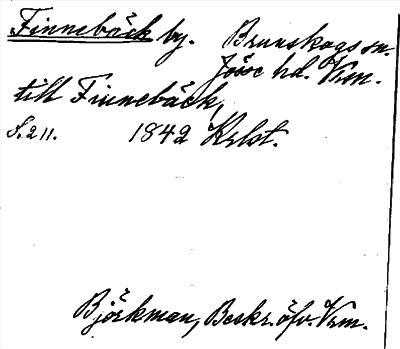 Finnebäck by. Brunskogs sn.
Jösse hd. Vrm.
till Finnebäck,
S. 211. 1842 Krlst.
Björkman, Beskr. öfv. Vrm.